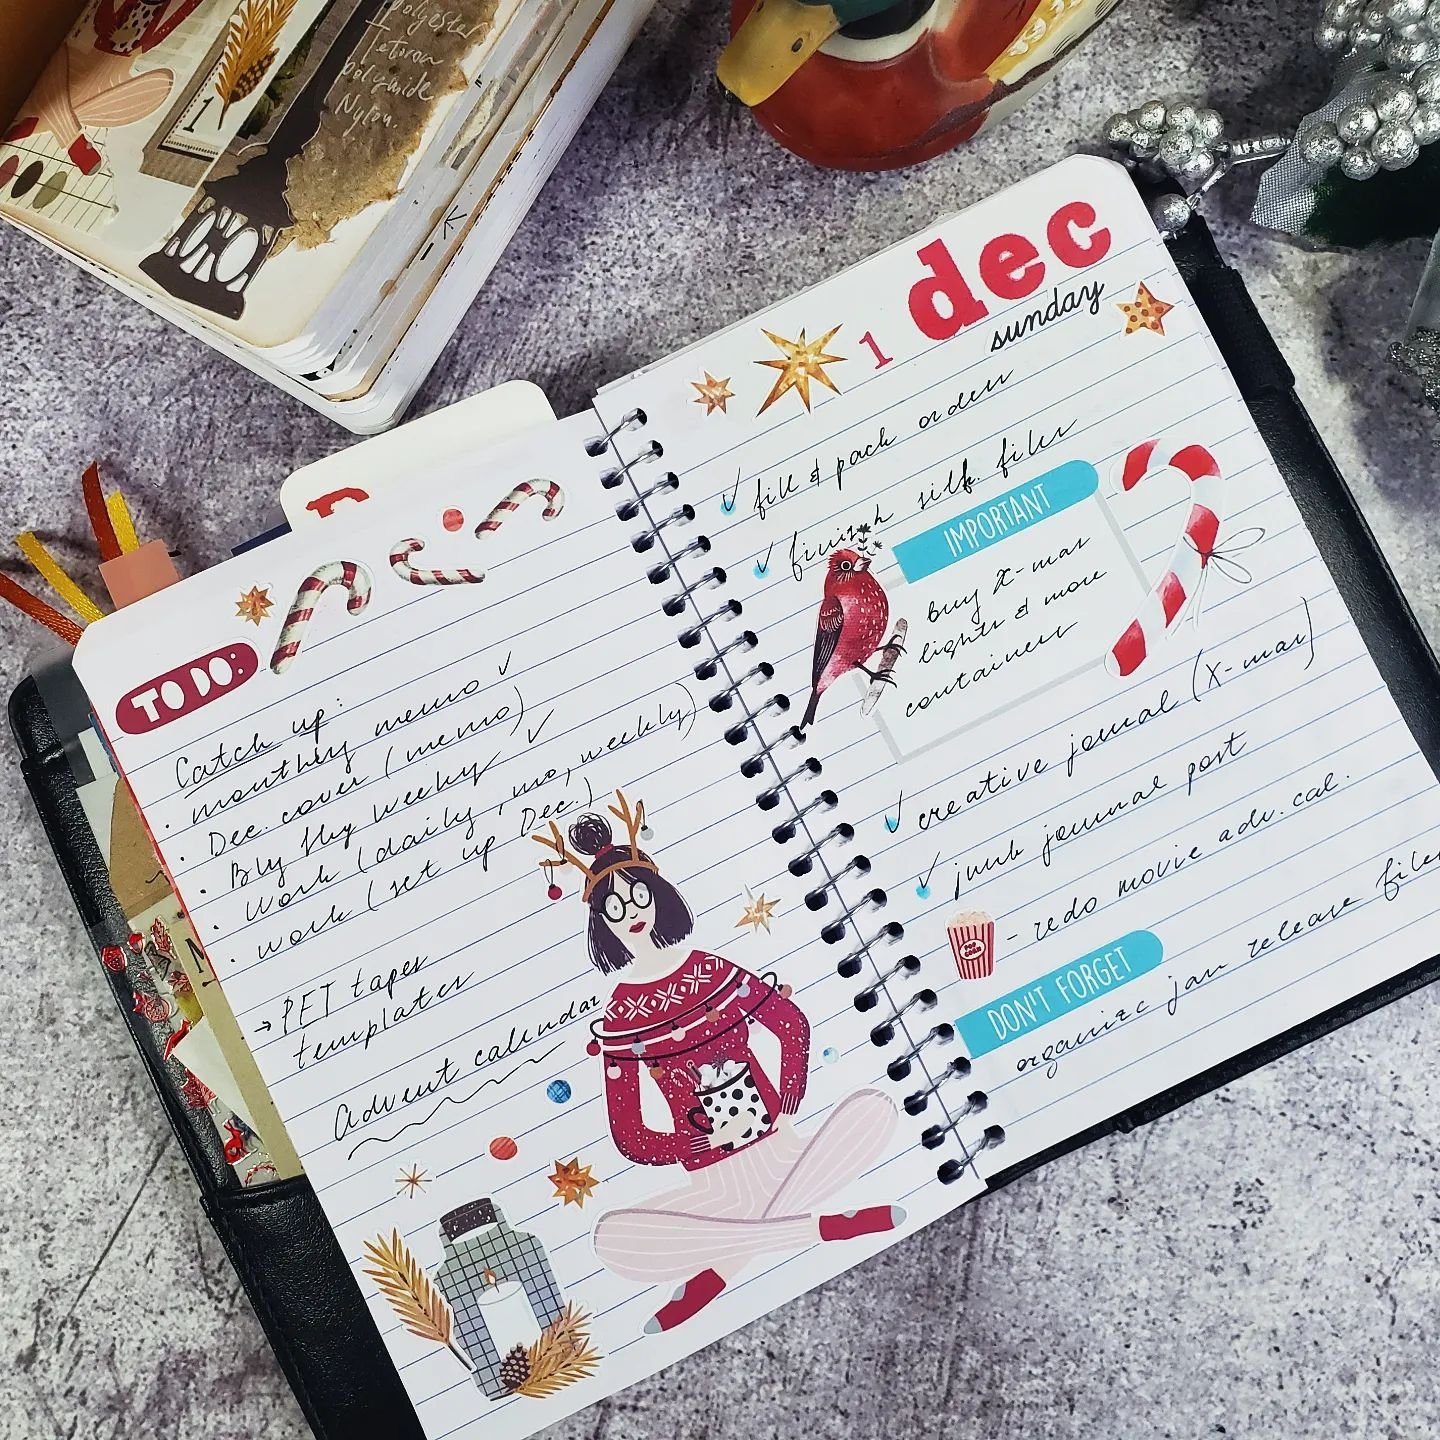 polyester
Tetoron
polyamide
Nylon.
1
TO DO:
Catch up:
· monthly memo ✓
· Dec. cover (memo)
· weekly ✓
· work (daily, mo, weekly)
· work (set up Dec.)
→ PET tapes
templates
Advent calendar
1 dec
sunday
✓ fill & pack orders
✓ finish silh. files
IMPORTANT
Buy X-mas
lights & more
containers
✓ creative journal (X-mas)
✓ junk journal post
POP CORN
- redo movie adv. cal.
DON'T FORGET
organize jan release files